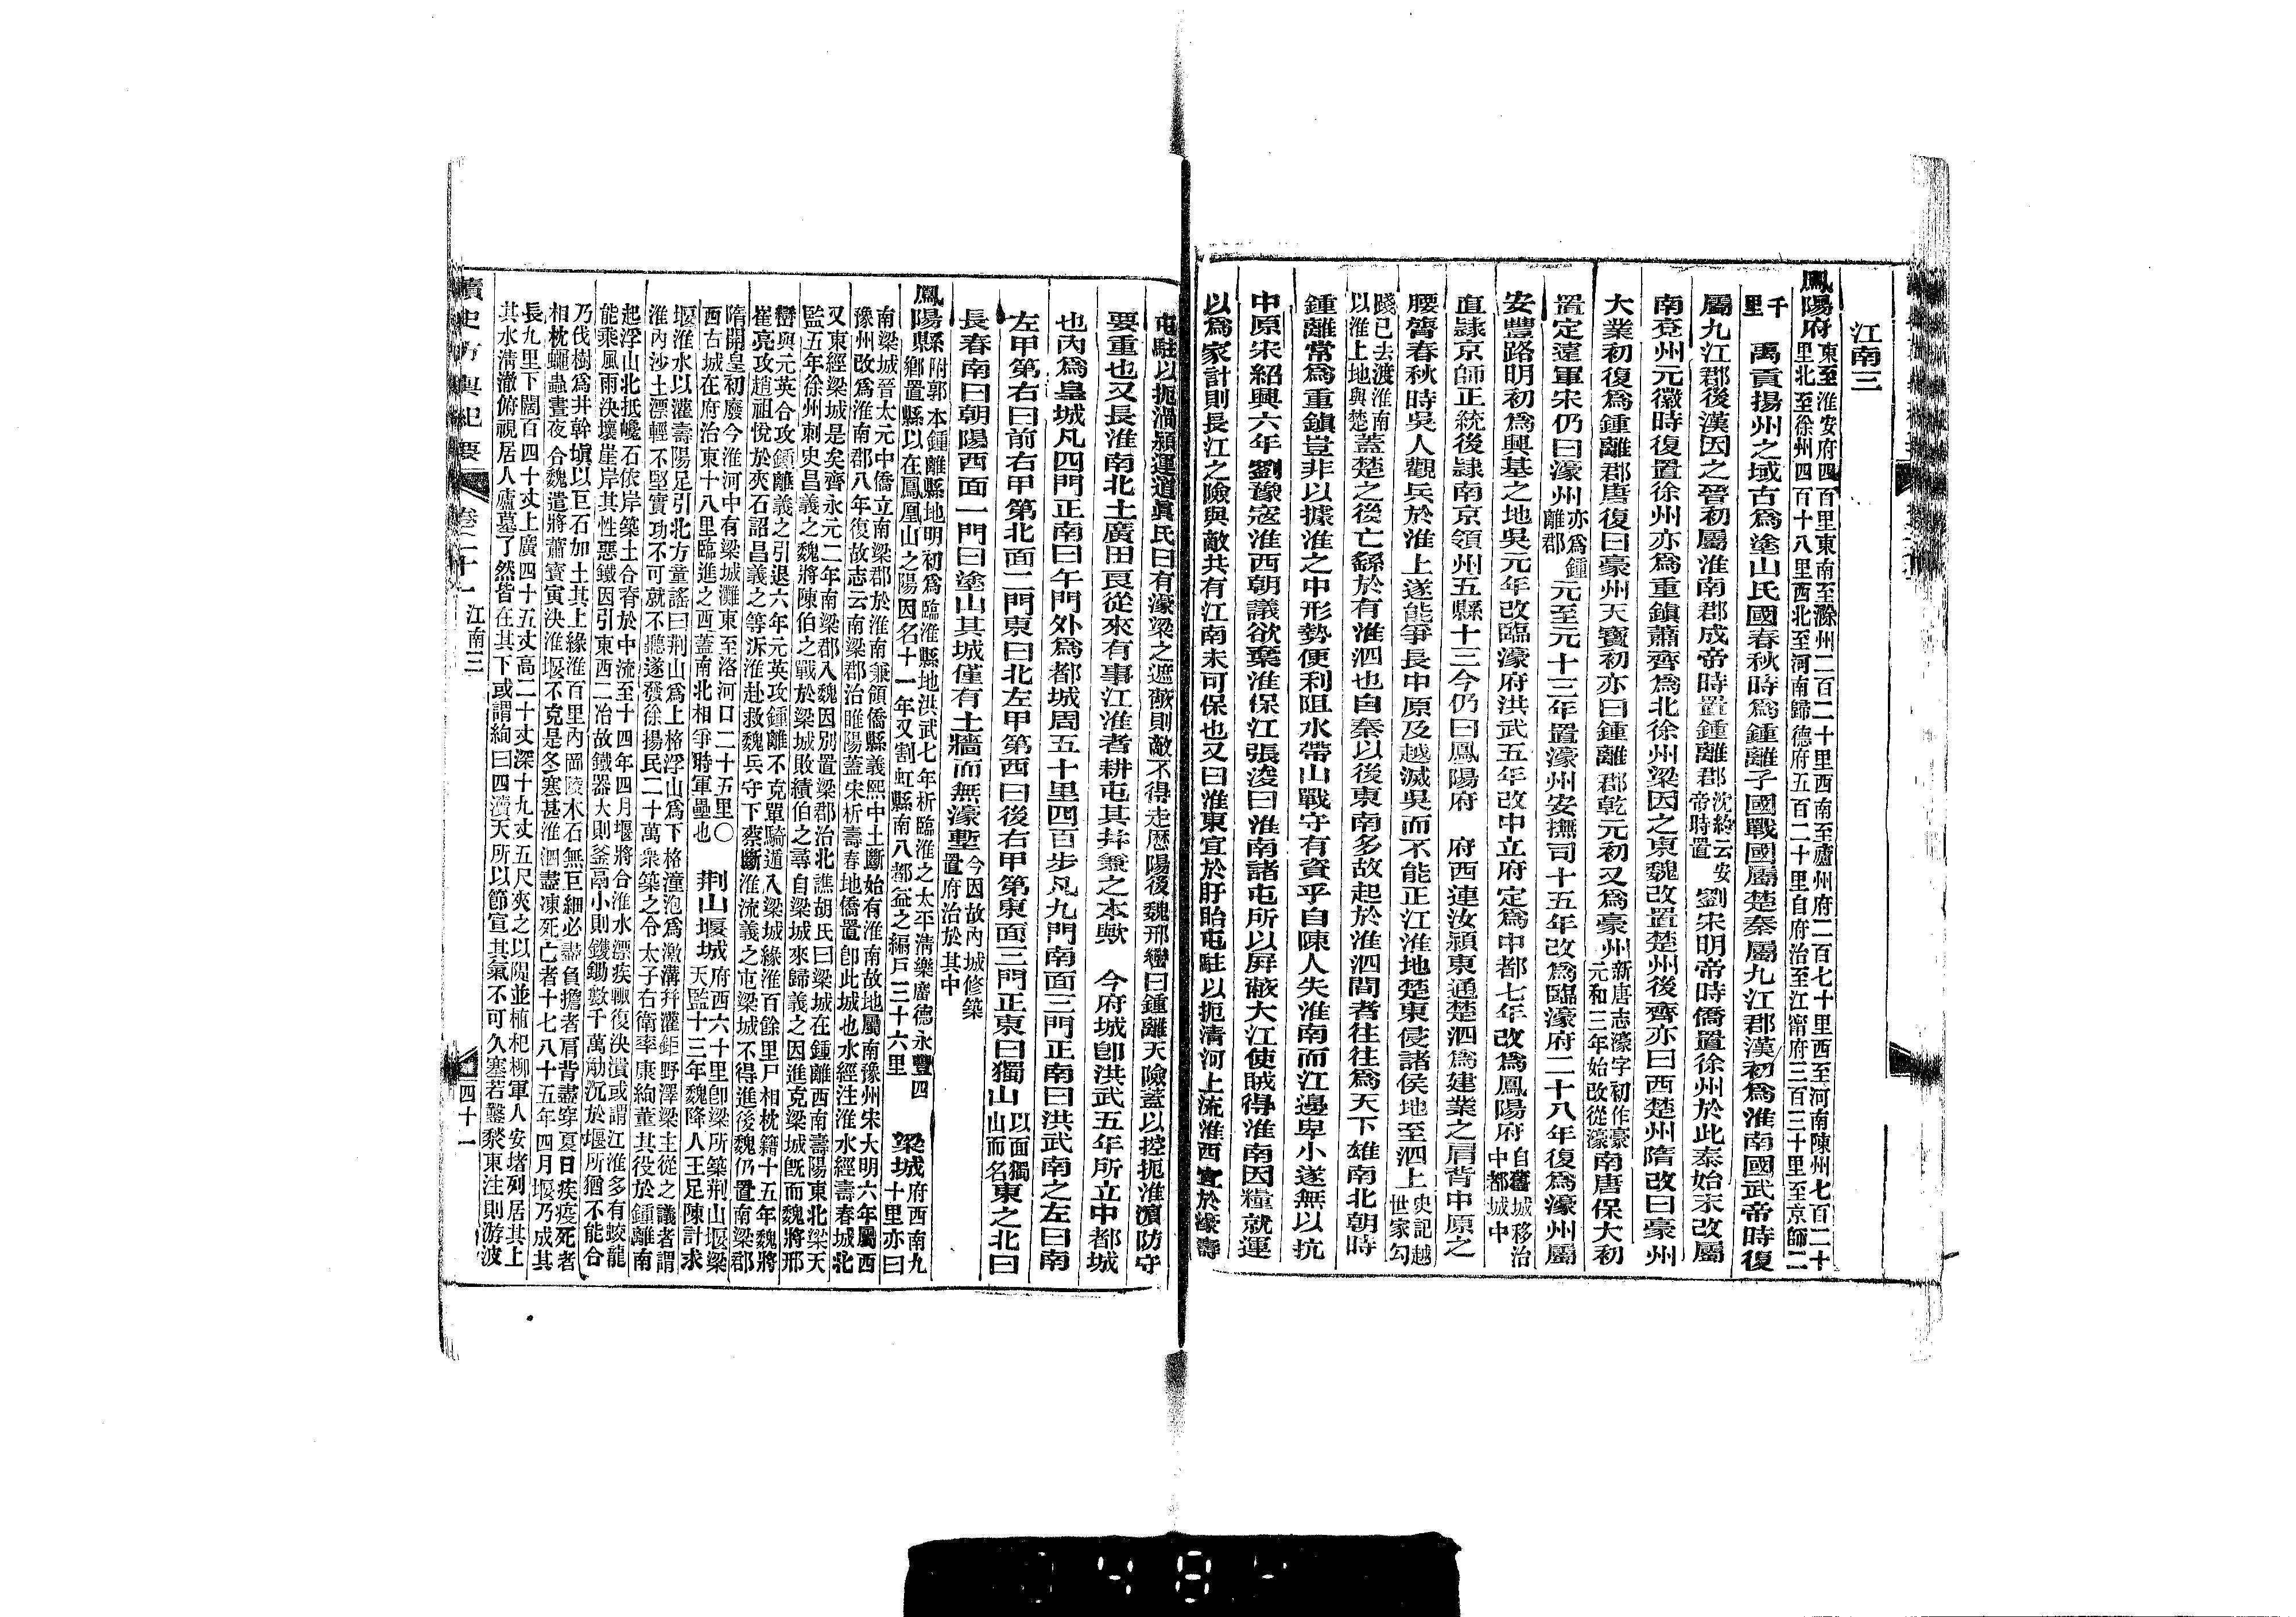 江南三
鳳陽府東至淮安府四百里東南至滁州二百二十里西南至廬州府二百七十里西至河南陳州七百二十
里北至徐州四百十八里西北至河南歸德府五百二十里自府治至江甯府三百三十里至京師二
千里　禹貢揚州之域古爲塗山氏國春秋時爲鍾離子國戰國屬楚秦屬九江郡漢初爲淮南國武帝時復
屬九江郡後漢因之晉初屬淮南郡成帝時置鍾離郡沈約云安帝時置劉宋明帝時僑置徐州於此泰始末改屬
南兗州元徽時復置徐州亦爲重鎮蕭齊爲北徐州梁因之東魏改置楚州後齊亦曰西楚州隋改曰豪州
大業初復爲鍾離郡唐復曰豪州天寶初亦曰鍾離郡乾元初又爲豪州新唐志濠字初作豪元和三年始改從濠南唐保大初
置定遠軍宋仍曰濠州亦爲鍾離郡元至元十三年置濠州安撫司十五年改爲臨濠府二十八年復爲濠州屬
安豐路明初爲興基之地吳元年改臨濠府洪武五年改中立府定爲中都七年改爲鳳陽府自舊城移治中都城中
直隷京師正統後隷南京領州五縣十三今仍曰鳳陽府　府西連汝潁東通楚泗爲建業之肩背中原之
腰膂春秋時吳人觀兵於淮上遂能爭長中原及越滅吳而不能正江淮地楚東侵諸侯地至泗上史記越世家勾
踐已去渡淮南以淮上地與楚蓋楚之後亡繇於有淮泗也自秦以後東南多故起於淮泗間者往往爲天下雄南北朝時
鍾離常爲重鎮豈非以據淮之中形勢便利阻水帶山戰守有資乎自陳人失淮南而江邊卑小遂無以抗
中原宋紹興六年劉豫寇淮西朝議欲棄淮保江張浚曰淮南諸屯所以屏蔽大江使賊得淮南因糧就運
以爲家計則長江之險與敵共有江南未可保也又曰淮東宜於盱眙屯駐以扼清河上流淮西宜於濠壽
屯駐以扼渦潁運道眞氏曰有濠梁之遮蔽則敵不得走歷陽後魏邢巒曰鍾離天險蓋以控扼淮濱防守
要重也又長淮南北土廣田良從來有事江淮者耕屯其幷兼之本歟　今府城卽洪武五年所立中都城
也內爲皇城凡四門正南曰午門外爲都城周五十里四百步凡九門南面三門正南曰洪武南之左曰南
左甲第右曰前右甲第北面二門東曰北左甲第西曰後右甲第東面三門正東曰獨山以面獨山而名東之北曰
長春南曰朝陽西面一門曰塗山其城僅有土牆而無濠塹今因故內城修築置府治於其中
鳳陽縣附郭本鍾離縣地明初爲臨淮縣地洪武七年析臨淮之太平清樂廣德永豐四鄉置縣以在鳳凰山之陽因名十一年又割虹縣南八都益之編戶三十六里　梁城府西南九十里亦曰
南梁城晉太元中僑立南梁郡於淮南兼領僑縣義熙中土斷始有淮南故地屬南豫州宋大明六年屬西
豫州改爲淮南郡八年復故志云南梁郡治睢陽蓋宋析壽春地僑置卽此城也水經注淮水經壽春城北
又東經梁城是矣齊永元二年南梁郡入魏因別置梁郡治北譙胡氏曰梁城在鍾離西南壽陽東北梁天
監五年徐州刺史昌義之魏將陳伯之戰於梁城敗績伯之尋自梁城來歸義之因進克梁城旣而魏將邢
巒與元英合攻鍾離義之引退六年元英攻鍾離不克單騎遁入梁城緣淮百餘里尸相枕籍十五年魏將
崔亮攻趙祖悅於夾石詔昌義之等泝淮赴救魏兵守下蔡斷淮流義之屯梁城不得進後魏仍置南梁郡
隋開皇初廢今淮河中有梁城灘東至洛河口二十五里〇　荆山堰城府西六十里卽梁所築荆山堰梁
西古城在府治東十八里臨進之西蓋南北相爭時軍壘也　天監十三年魏降人王足陳計求
堰淮水以灌壽陽足引北方童謠曰荆山爲上格浮山爲下格潼沱爲激溝幷灌鉅野澤梁主從之議者謂
淮內沙土漂輕不堅實功不可就不聽遂發徐揚民二十萬衆築之令太子右衛率康絢董其役於鍾離南
起浮山北抵巉石依岸築土合脊於中流至十四年四月堰將合淮水漂疾輒復決潰或謂江淮多有蛟龍
能乘風雨決壞崖岸其性惡鐵因引東西二冶故鐵器大則釜鬲小則鑊鋤數千萬觔沉於堰所猶不能合
乃伐樹爲井幹塡以巨石加土其上緣淮百里內岡陵木石無巨細必盡負擔者肩背盡穿夏日疾疫死者
相枕蠅蟲晝夜合魏遣將蕭寶寅決淮堰不克是冬寒甚淮泗盡凍死亡者十七八十五年四月堰乃成其
長九里下闊百四十丈上廣四十五丈高二十丈深十九丈五尺夾之以隄並植杞柳軍人安堵列居其上
其水清澈俯視居人廬墓了然皆在其下或謂絢曰四瀆天所以節宣其氣不可久塞若鑿湬東注則游波
讀史方輿紀要　卷二十一　江南三　四十一